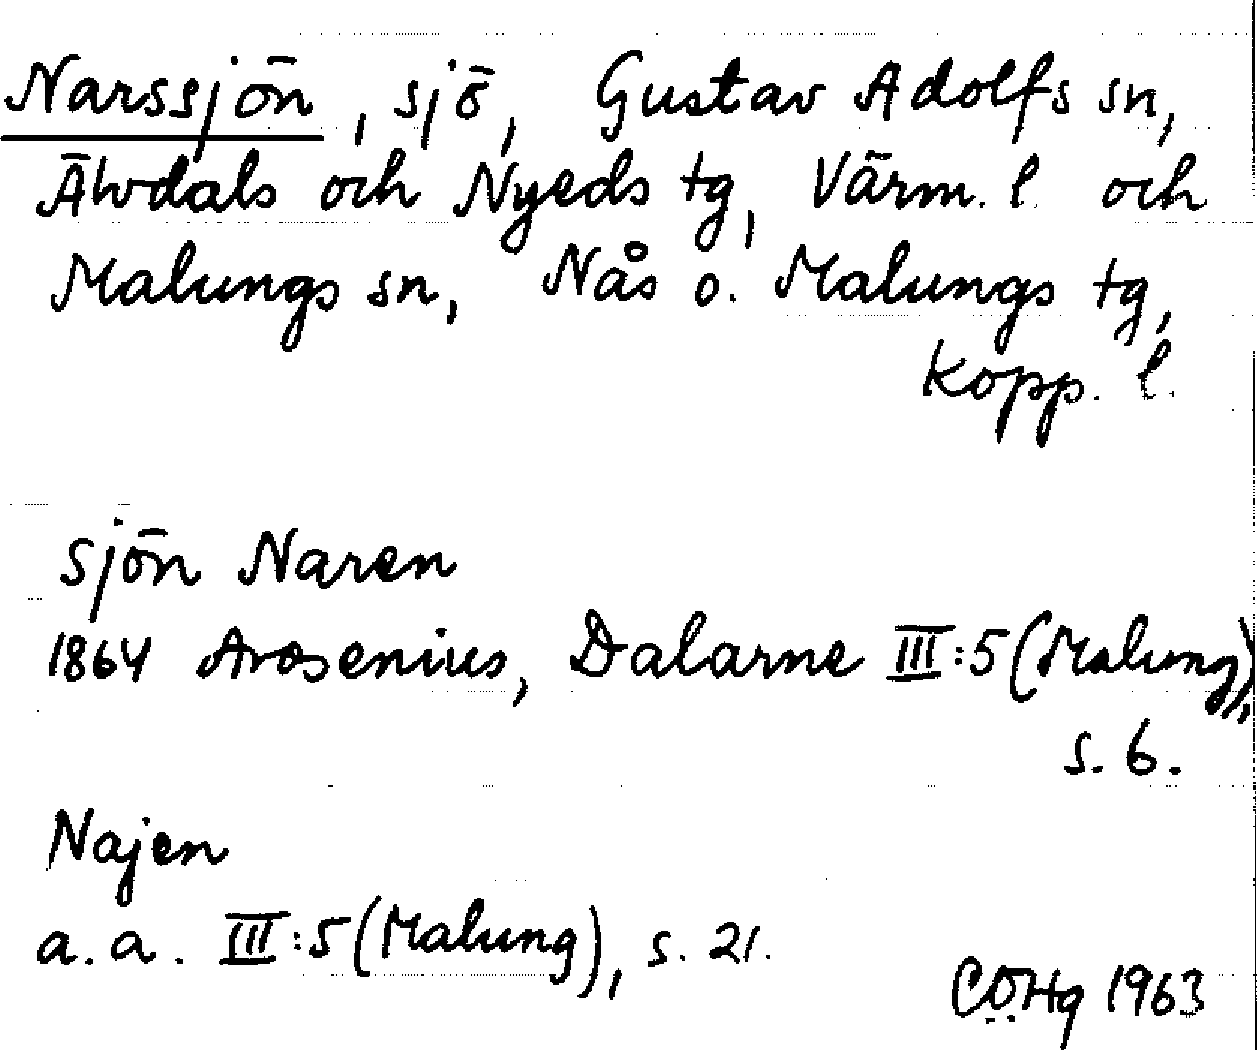 Narssjön, sjö, Gustav Adolfs sn,
Älvdals och Nyeds tg, Värm. l. och
Malungs sn, Nås o. Malungs tg,
Kopp. l.
sjön Naren
1864 Arosenius, Dalarne III:5 (Malung),
s. 6.
Najen
a.a. III:5 (Malung), s. 21.
CÖHg 1963